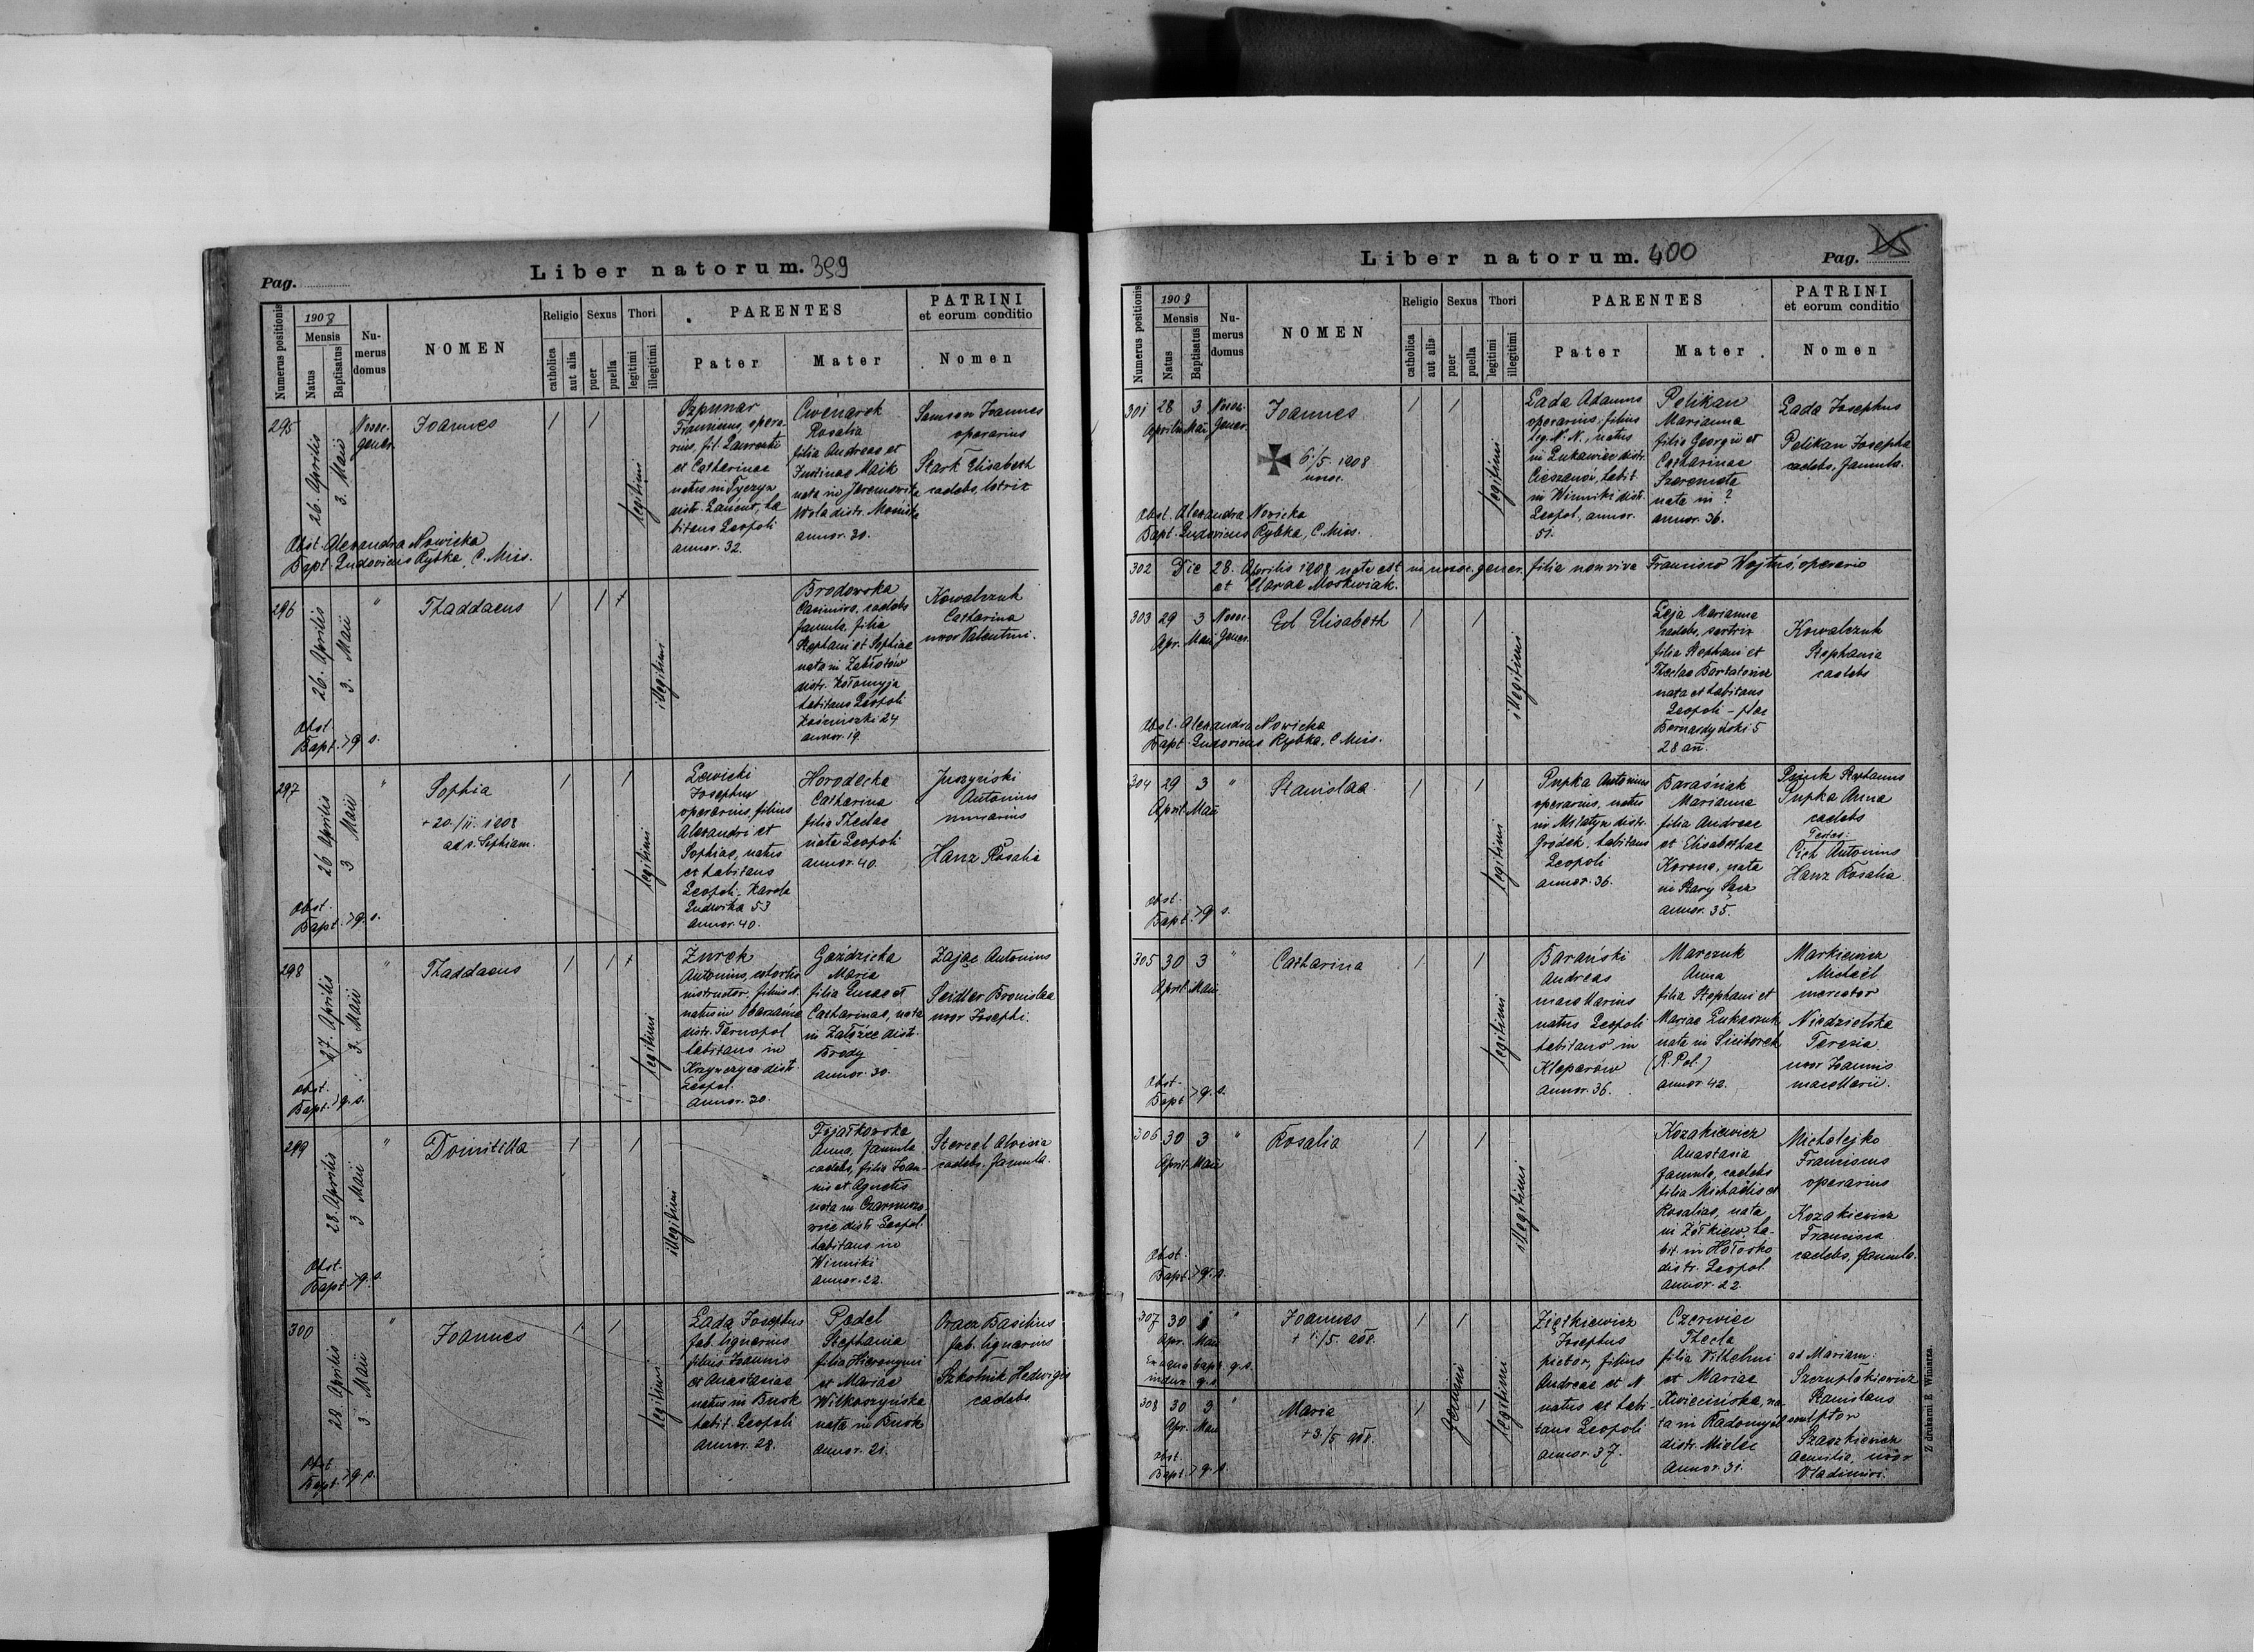 Pag.
Liber natorum. 399
Numerus positionis
1908
Mensis
Natus
Baptisatus
Numerus domus
NOMEN
Religio
catholica
aut alia
Sexus
puer
puella
Thori
legitimi
illegitimi
PARENTES
Pater
Mater
PATRINI
et eorum conditio
Nomen
295
26. Aprilis
3. Maii
Nosoc.
gener.
Joannes
legitimi
Szpunar
Franciscus, opera-
rius, fil. Laurentii
et Catharinae
natus in Tyczyn
distr. Łańcut, ha-
bitans Leopoli
annor. 32.
Cwenarek
Rosalia
filia Andreae et
Justinae Maik
annor. 30.
Samson Joannes
operarius
Stark Elisabeth
caelebs, lotrix
Obst. Alexandra Nowicka
Bapt. Ludovicus Rybka, C. Miss.
296
26. Aprilis
3. Maii
"
Thaddaeus
illegitimi
Brodowska
Casimira, caelebs
famula, filia
Stephani et Sophiae
nata in Zabłotów
distr. Kołomyja
habitans Leopoli
Kościuszki 24
annor. 19.
Kowalczuk
Catharina
uxor Valentini.
Obst.
Bapt. > q. s.
297
26 Aprilis
3 Maii
"
Sophia
+ 20./11. 1908
ad s. Sophiam.
legitimi
Lewicki
Josephus
operarius, filius
Alexandri et
Sophiae, natus
et habitans
Leopoli - Karola
Ludwika 53
annor. 40.
Horodecka
Catharina
filia Theclae
nata Leopoli
annor. 40.
Juszyński
Antonius
murarius
Hanz Rosalia
Obst.
Bapt. > q. s.
298
27. Aprilis
3. Maii
"
Thaddaeus
legitimi
Żurek
Antonius,
natus in
distr. Tarnopol
habitans in
Krzywczyce distr.
Leopol.
annor. 30.
Goździcka
Maria
filia Lucae et
Catharinae, nata
in Załoźce distr.
Brody
annor. 30.
Zając Antonius
Seidler Bronislaa
uxor Josephi.
Obst.
Bapt. > q. s.
299
28. Aprilis
3 Maii
"
Domitilla
illegitimi
"
Fijałkowska
Anna, famula
caelebs, filia Joan-
nis et Agnetis
nata in Czarnuszo-
wice distr. Leopol.
habitans in
Winniki
annor. 22.
Stercel Aloisia
caelebs, famula.
Obst.
Bapt. > q. s.
300
28. Aprilis
3. Maii
"
Joannes
legitimi
Lada Josephus
fab. lignarius
filius Joannis
et Anastasiae
natus in Busk
habit. Leopoli
annor. 28.
Pedel
Stephania
filia Hieronymi
et Mariae
Wilkoszyńska
nata in Busk
annor. 21.
Oracz Basilius
fab. lignarius
Szkolnik Hedwigis
caelebs
Obst.
Bapt. > q. s.
Liber natorum. 400
Pag.
Numerus positionis
1908
Mensis
Natus
Baptisatus
Numerus domus
NOMEN
Religio
catholica
aut alia
Sexus
puer
puella
Thori
legitimi
illegitimi
PARENTES
Pater
Mater
PATRINI
et eorum conditio
Nomen
301
28 Aprilis
3 Maii
Nosoc.
Gener.
Joannes
+ 6./5. 1908
nosoc.
legitimi
Lada Adamus
operarius, filius
leg. N. N., natus
in Łukawiec distr.
Cieszanów, habit.
in Winniki distr.
Leopol., annor.
51.
Pelikan
Marianna
filia Georgii et
Catharinae
Szeremeta
nata in ?
annor. 36.
Lada Josephus
Pelikan Josepha
caelebs, famula.
Obst. Alexandra Nowicka
Bapt. Ludovicus Rybka, C. Miss.
302 Die 28. Aprilis 1908 nata est in nosoc. gener. filia non viva Francisco Wojtuś, operario
et Clarae Moskwiak.
303
29 Apr.
3 Maii
Nosoc.
Gener.
Ed Elisabeth
illegitimi
Leja Marianna
caelebs, sartrix
filia Stephani et
Theclae
nata et habitans
Leopoli - plac
Bernardyński 5
28 an.
Kowalczuk
Stephania
caelebs
Obst. Alexandra Nowicka
Bapt. Ludovicus Rybka, C Miss.
304
29 April.
3 Maii
"
Stanislaa
legitimi
Pupka Antonius
operarius, natus
in Milatyn distr.
Gródek, habitans
Leopoli
annor. 36.
Baraśniak
Marianna
filia Andreae
et Elisabethae
Korona, nata
in Stary Sącz
annor. 35.
Stephanus
Pupka Anna
caelebs
Testes:
Cich Antonius
Hanz Rosalia.
Obst.
Bapt. > q. s.
305
30 April.
3 Maii
"
Catharina
legitimi
Barański
Andreas
macellarius
natus Leopoli
habitans in
Kleparów
annor. 36.
Marczuk
Anna
filia Stephani et
Mariae Łukaszuk
nata in
(R. Pol.)
annor 42.
Markiewicz
Michaël
mercator
Niedzielska
Teresia
uxor Joannis
macellarii.
Obst.
Bapt. > q. s.
306
30 April.
3 Maii
"
Rosalia
illegitimi
Kozakiewicz
Anastasia
famula, caelebs
filia Michaëlis et
Rosaliae, nata
in Żółkiew, ha-
bit. in Hołosko
distr. Leopol.
annor. 22
Michalejko
Franciscus
operarius
Kozakiewicz
Francisca
caelebs, famula.
Obst.
Bapt. > q. s.
307
30 Apr.
Maii
"
Joannes
+ 1./5. 908.
Ex aqua bapt. q. s.
Gemini
legitimi
Ziętkiewicz
Josephus
pictor, filius
Andreae et N.
natus et habi-
tans Leopoli
annor. 37.
Czerwiec
Thecla
filia Vilhelmi
et Mariae
Kwiecińska, na-
ta in Radomyśl
distr. Mielec
annor. 31.
ad Mariam:
Stanislaus
sculptor
Szaszkiewicz
Aemilia, uxor
Vladimiri.
308
30 Apr.
3 Maii
"
Maria
+ 3./5 908.
Obst.
Bapt. > q. s.
Z drukarni E. Winiarza.